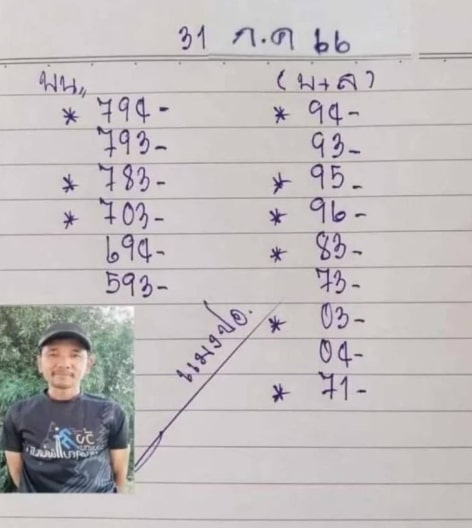 31 ก.ค 66
บน,,
* 794-
793-
* 783-
* 703-
694-
593-
(บ+ล)
* 94-
93-
* 95-
* 96-
* 83-
73-
* 03-
04-
* 71-